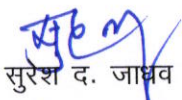 सुरेश द. जाधव